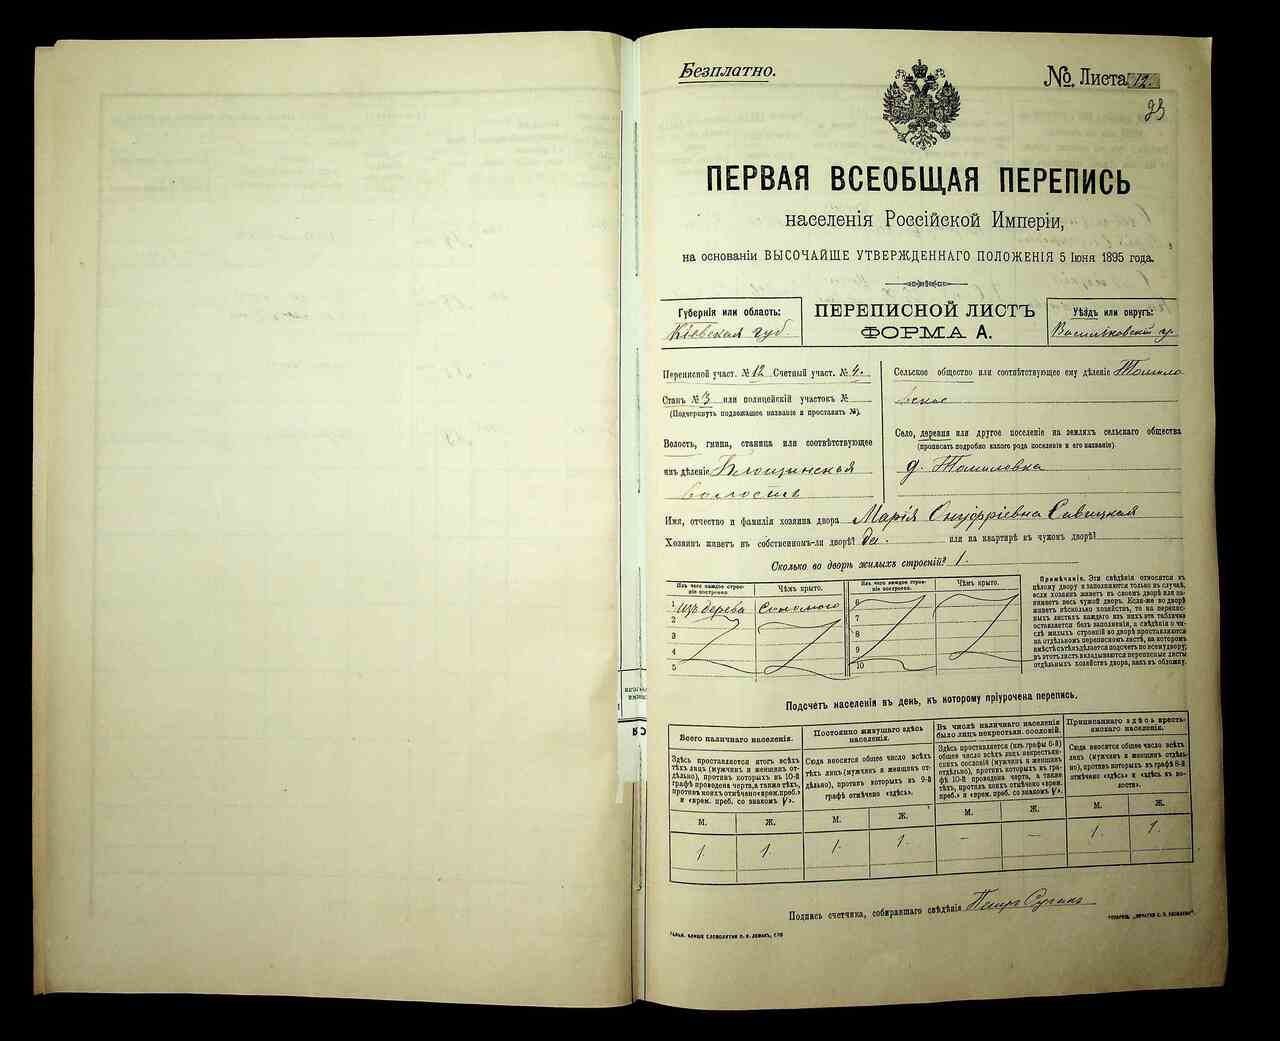 Безплатно.
№ Листа 12.
23
ПЕРВАЯ ВСЕОБЩАЯ ПЕРЕПИСЬ
населенія Россійской Имперіи,
на основаніи ВЫСОЧАЙШЕ УТВЕРЖДЕННАГО ПОЛОЖЕНІЯ 5 Іюня 1895 года.
Губернія или область:
Кіевская губ.
ПЕРЕПИСНОЙ ЛИСТЪ
ФОРМА А.
Уѣздъ или округъ:
Васильковскій у.
Переписной участ. № 12 Счетный участ. № 4.
Станъ № 3 или полицейскій участокъ №
(Подчеркнуть подлежащее названіе и проставить №).
Волость, гмина, станица или соотвѣтствующее
имъ дѣленіе
волость
Сельское общество или соотвѣтствующее ему дѣленіе Томило
вское
Село, деревня или другое поселеніе на земляхъ сельскаго общества
(прописать подробно какого рода поселеніе и его названіе).
д. Томиловка
Имя, отчество и фамилія хозяина двора Марія Онуфріевна Савицкая
Хозяинъ живетъ въ собственномъ-ли дворѣ? да. или на квартирѣ въ чужомъ дворѣ?
Сколько во дворѣ жилыхъ строеній? 1.
Изъ чего каждое строе-
ніе построено.
Чѣмъ крыто.
Изъ чего каждое строе-
ніе построено.
Чѣмъ крыто.
1 изъ дерева Соломою 6
2 7
3 8
4 9
5 10
Примѣчаніе. Эти свѣдѣнія относятся къ
цѣлому двору и заполняются только въ случаѣ,
если хозяинъ живетъ въ своемъ дворѣ или за-
нимаетъ весь чужой дворъ. Если-же во дворѣ
живетъ нѣсколько хозяйствъ, то на перепис-
ныхъ листахъ каждаго изъ нихъ эта табличка
оставляется безъ заполненія, а свѣдѣнія о чи-
слѣ жилыхъ строеній во дворѣ проставляются
на отдѣльномъ переписномъ листѣ, на которомъ
вмѣстѣ съ тѣмъ дѣлается подсчетъ по всему двору;
въ этотъ листъ вкладываются переписные листы
отдѣльныхъ хозяйствъ двора, какъ въ обложку.
Подсчетъ населенія въ день, къ которому пріурочена перепись.
Всего наличнаго населенія.
Здѣсь проставляется итогъ всѣхъ
тѣхъ лицъ (мужчинъ и женщинъ от-
дѣльно), противъ которыхъ въ 10-й
графѣ проведена черта, а также тѣхъ,
противъ коихъ отмѣчено «врем. преб.»
и «врем. преб. со знакомъ V».
Постоянно живущаго здѣсь
населенія.
Сюда вносится общее число всѣхъ
тѣхъ лицъ (мужчинъ и женщинъ от-
дѣльно), противъ которыхъ въ 9-й
графѣ отмѣчено «здѣсь».
Въ числѣ наличнаго населенія
было лицъ некрестьян. сословій.
Здѣсь проставляется (изъ графы 6-й)
общее число всѣхъ лицъ некрестьян-
скихъ сословій (мужчинъ и женщинъ
отдѣльно), противъ которыхъ въ гра-
фѣ 10-й проведена черта, а также
тѣхъ, противъ коихъ отмѣчено «врем.
преб.» и «врем. преб. со знакомъ V».
Приписаннаго здѣсь кресть-
янскаго населенія.
Сюда вносится общее число всѣхъ
лицъ (мужчинъ и женщинъ отдѣль-
но), противъ которыхъ въ графѣ 8-й
отмѣчено «здѣсь» и «здѣсь въ во-
лости».
М. Ж. М. Ж. М. Ж. М. Ж.
1. 1. 1. 1. — — 1. 1.
Подпись счетчика, собиравшаго свѣдѣнія Петръ